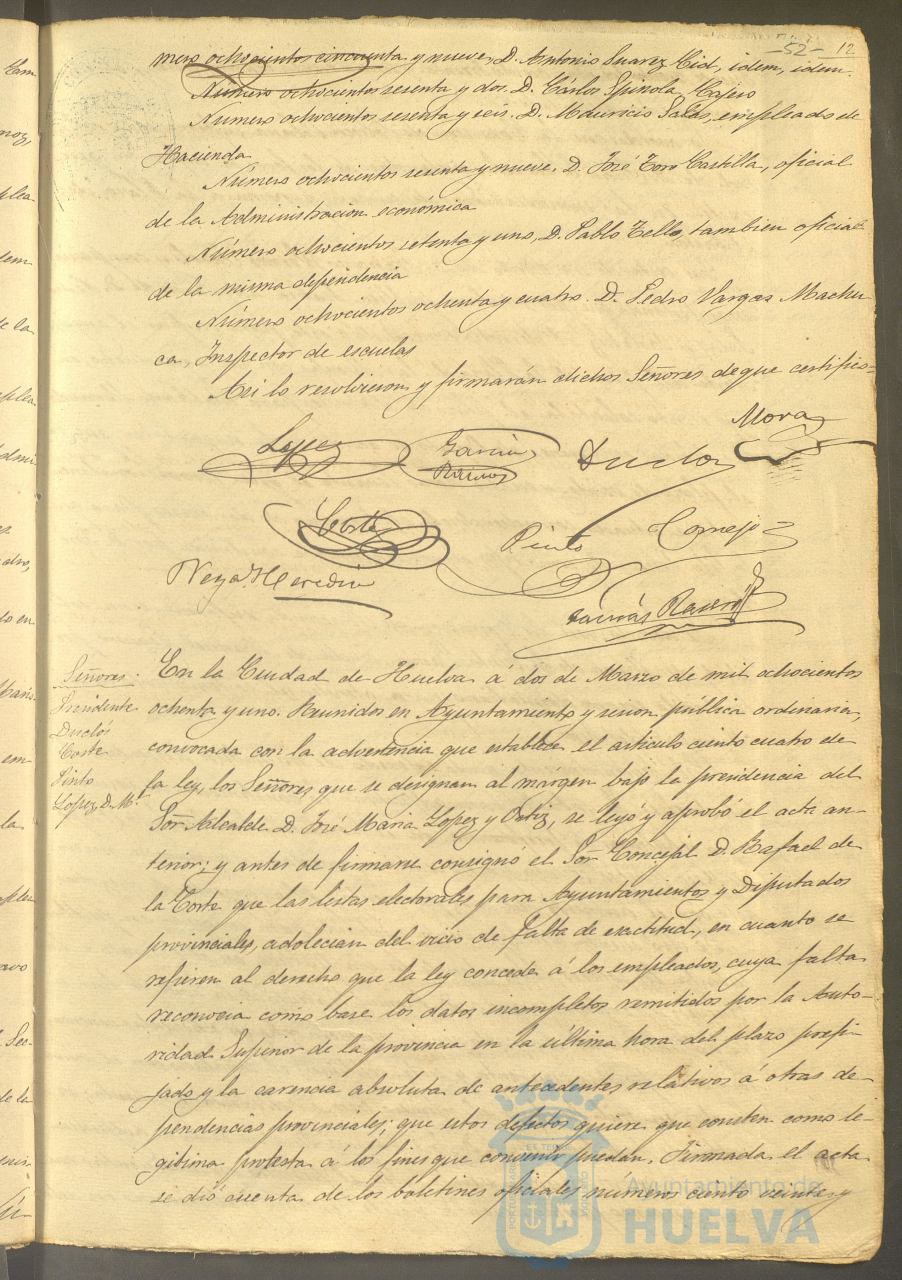 -52- 12
mero ochocientos cincuenta y nueve, D. Antonio Suarez Cid, idem, idem.
Número ochocientos sesenta y dos D. Cárlos Spinola, Cajero
Número ochocientos sesenta y seis. D. Mauricio Salas, empleado de
Hacienda
Número ochocientos sesenta y nueve. D. José Toro Castilla, oficial
de la Administracion económica
Número ochocientos setenta y uno, D. Pablo Tello, tambien oficial
de la misma dependencia
Número ochocientos ochenta y cuatro. D. Pedro Vargas Machu-
ca, Inspector de escuelas
Asi lo resolvieron y firmarán dichos Señores de que certifico=
Mora
Lopez
Garcia
Ramos
Duclos
Coste
Pinto
Cornejo
Heredia
Señores.
Presidente
Duclós
Coste
Pinto
Lopez, D. M.l
En la Ciudad de Huelva á dos de Marzo de mil ochocientos
ochenta y uno. Reunidos en Ayuntamiento y sesion pública ordinaria,
convocada con la advertencia que establece el articulo ciento cuatro de
la ley, los Señores que se designan al márgen bajo la presidencia del
Sor Alcalde D. José Maria Lopez y Ortiz, se leyó y aprobó el acta an-
terior; y antes de firmarse consignó el Sor Concejal D. Rafael de
la Corte que las listas electorales para Ayuntamientos y Diputados
provinciales, adolecian del vicio de falta de exactitud, en cuanto se
refieren al derecho que la ley concede á los empleados, cuya falta
reconocia como base los datos incompletos remitidos por la Auto-
ridad Superior de la provincia en la última hora del plazo prefi-
jado y la carencia absoluta de antecedentes relativos á otras de-
pendencias provinciales; que estos defectos quiere que consten como le-
gitima protesta á los fines que convenir puedan. Firmada el acta
se dió cuenta de los boletines oficiales numeros ciento veinte y
Ayuntamiento de
HUELVA